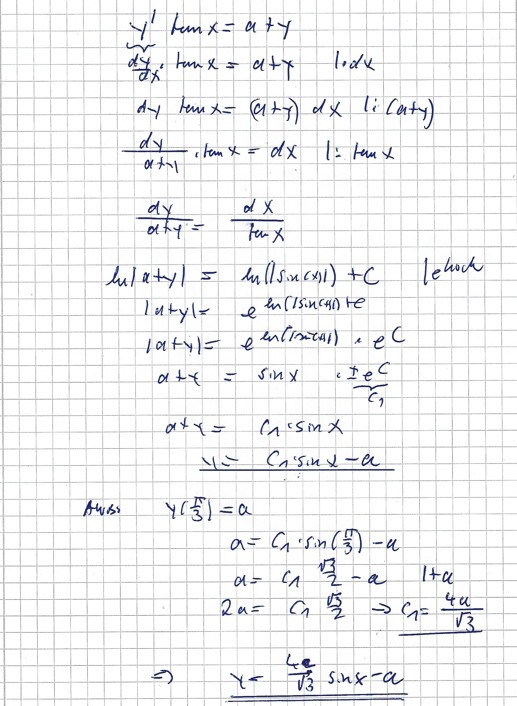 y' tan x = a+y
dy/dx · tan x = a+y |·dx
dy tan x = (a+y) dx |: (a+y)
dy/(a+y) · tan x = dx |: tan x
dy/(a+y) = dx/tan x
ln|a+y| = ln(|sin(x)|) + C |e hoch
|a+y| = e^(ln(|sin(x)|)+c)
|a+y| = e^(ln(|sin(x)|)) · e^C
a+y = sin x · ±e^C
C₁
a+y = C₁·sin x
y = C₁·sin x - a
AWB: y(π/3) = a
a = C₁·sin(π/3) - a
a = C₁ √3/2 - a |+a
2a = C₁ √3/2 → C₁ = 4a/√3
⇒ y = 4a/√3 sin x - a